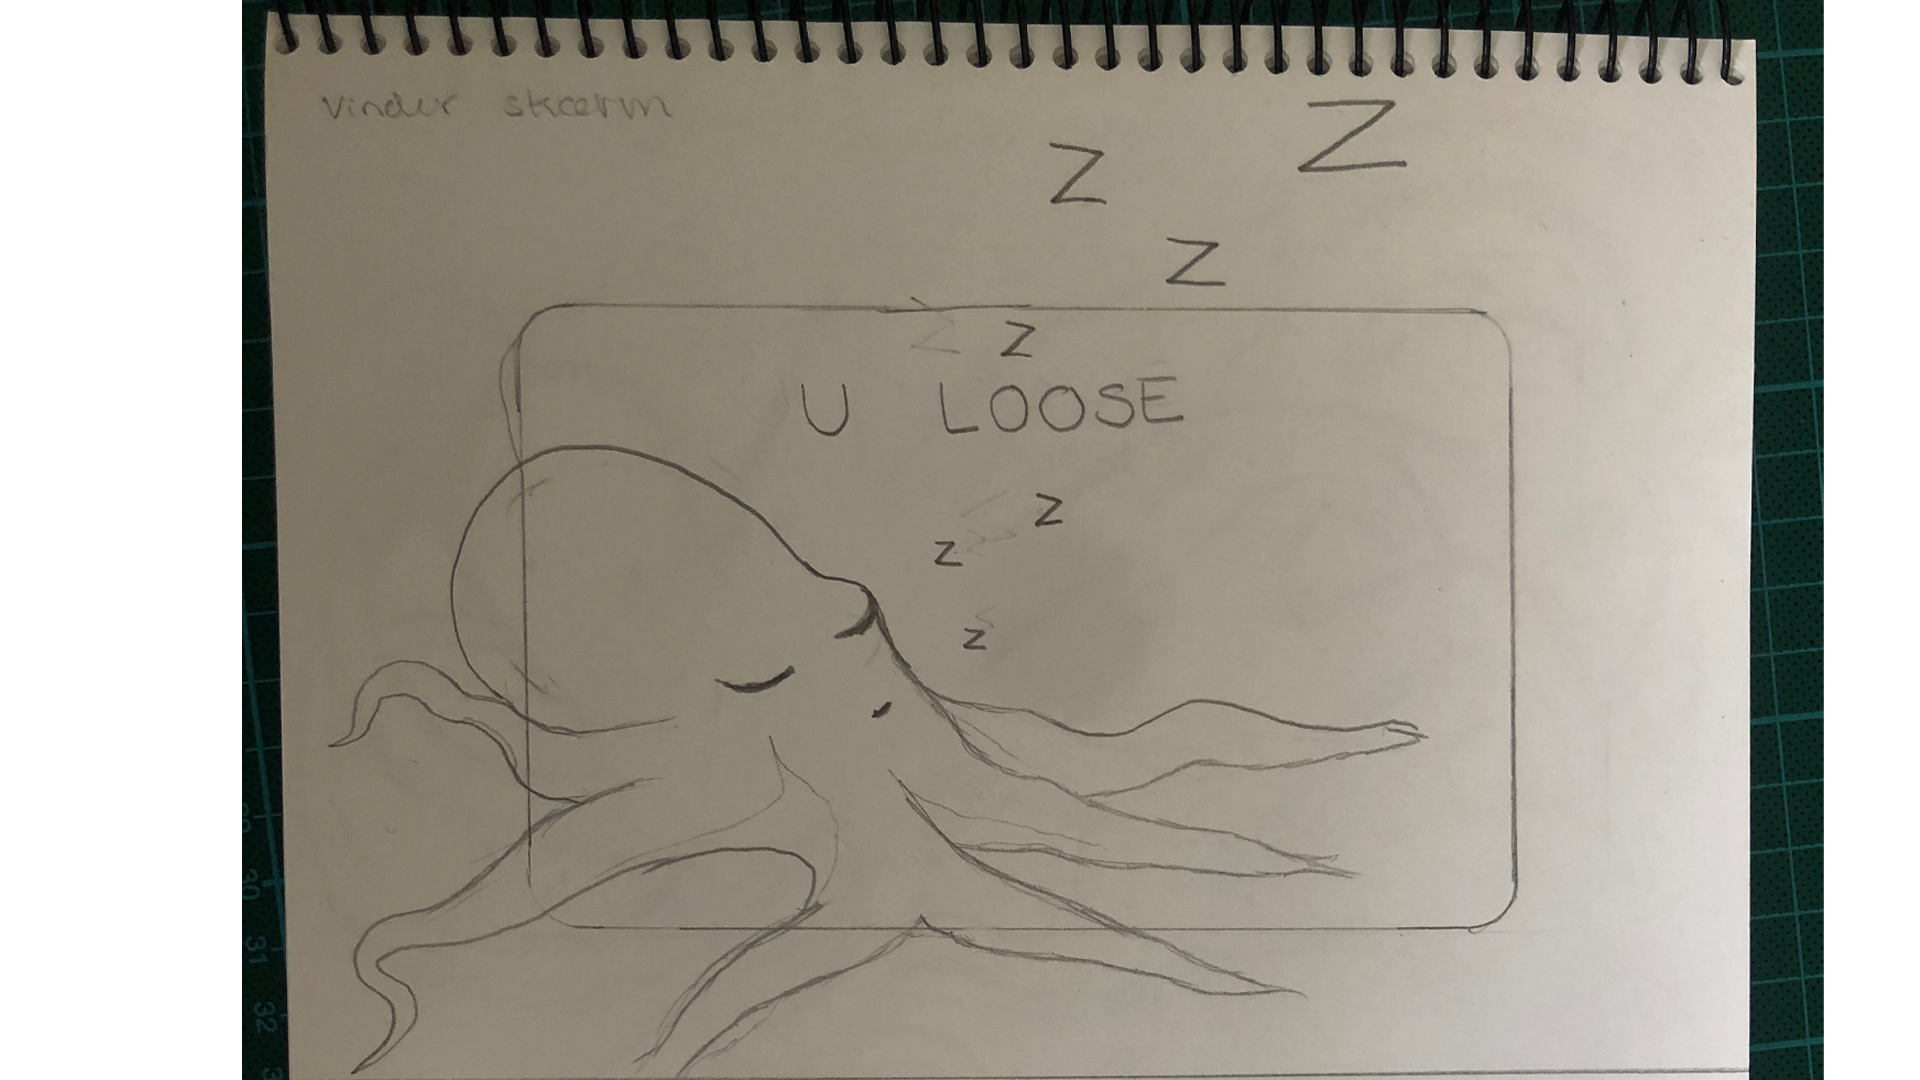 vinder skærm
Z
Z
Z
Z
U LOOSE
Z
Z
Z